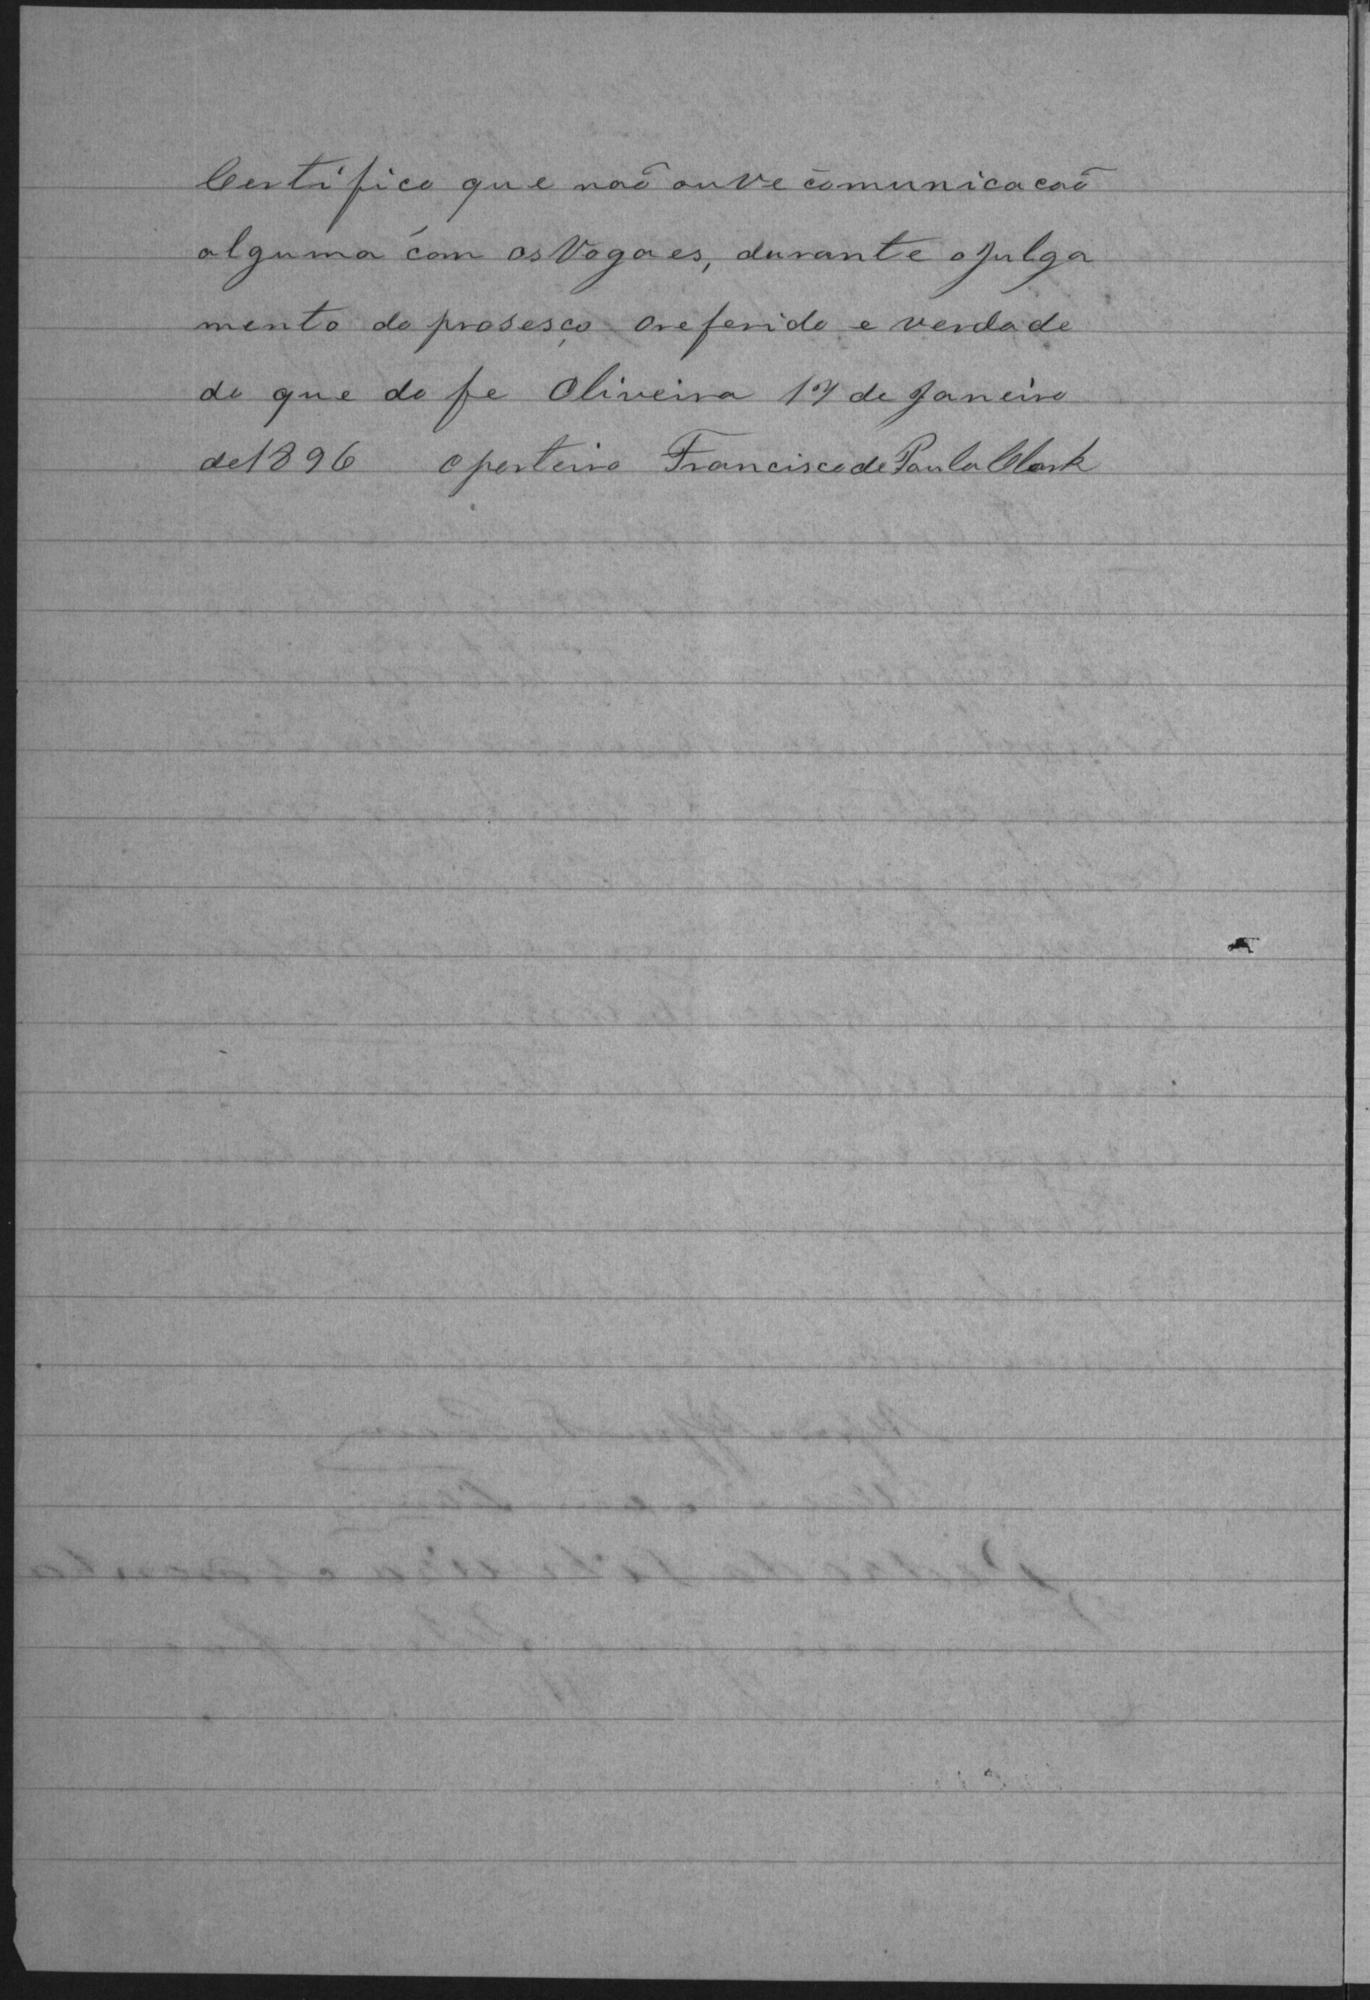 Certifico que naõ ouve comunicacaõ
alguma com os Vogaes, durante o julga
mento do prosesço o referido e verdade
do que do fe Oliveira 17 de Janeiro
de 1896 o porteiro Francisco de Paula Clark